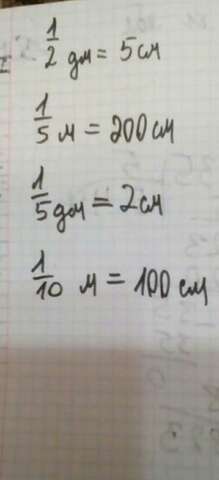 1/2 дм = 5 см
1/5 м = 200 см
1/5 дм = 2 см
1/10 м = 100 см